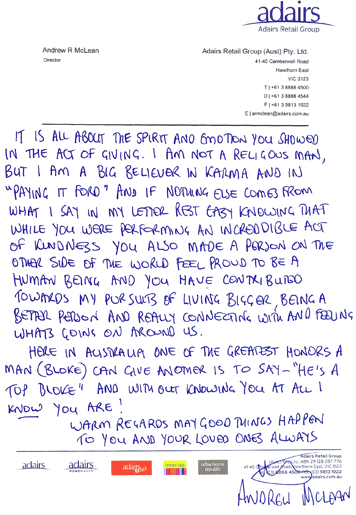 adairs
Adairs Retail Group
Andrew R McLean
Director
Adairs Retail Group (Aust) Pty. Ltd.
41-45 Camberwell Road
Hawthorn East
VIC 3123
T | +61 3 8888 4500
D | +61 3 8888 4544
F | +61 3 9813 1922
E | armclean@adairs.com.au
IT IS ALL ABOUT THE SPIRIT AND EMOTION YOU SHOWED
IN THE ACT OF GIVING. I AM NOT A RELIGOUS MAN,
BUT I AM A BIG BELIEVER IN KARMA AND IN
"PAYING IT FORD" AND IF NOTHING ELSE COMES FROM
WHAT I SAY IN MY LETTER REST EASY KNOWING THAT
WHILE YOU WERE PERFORMING AN INCREDDIBLE ACT
OF KINDNESS YOU ALSO MADE A PERSON ON THE
OTHER SIDE OF THE WORLD FEEL PROUD TO BE A
HUMAN BEING AND YOU HAVE CONTRIBUTED
TOWARDS MY PURSUITS OF LIVING BIGGER, BEING A
BETTER PERSON AND REALLY CONNECTING WITH AND FEELING
WHATS GOING ON AROUND US.
HERE IN AUSTRALIA ONE OF THE GREATEST HONORS A
MAN (BLOKE) CAN GIVE ANOTHER IS TO SAY - "HE'S A
TOP BLOKE" AND WITH OUT KNOWING YOU AT ALL I
KNOW YOU ARE!
WARM REGARDS MAY GOOD THINGS HAPPEN
TO YOU AND YOUR LOVED ONES ALWAYS
adairs adairs adairs
Adairs Retail Group
ABN 29 128 287 776
41-45 Road, Hawthorn East, VIC 3123
(03) 8888 4500 (03) 9813 1922
www.adairs.com.au
ANDREW MCLEAN